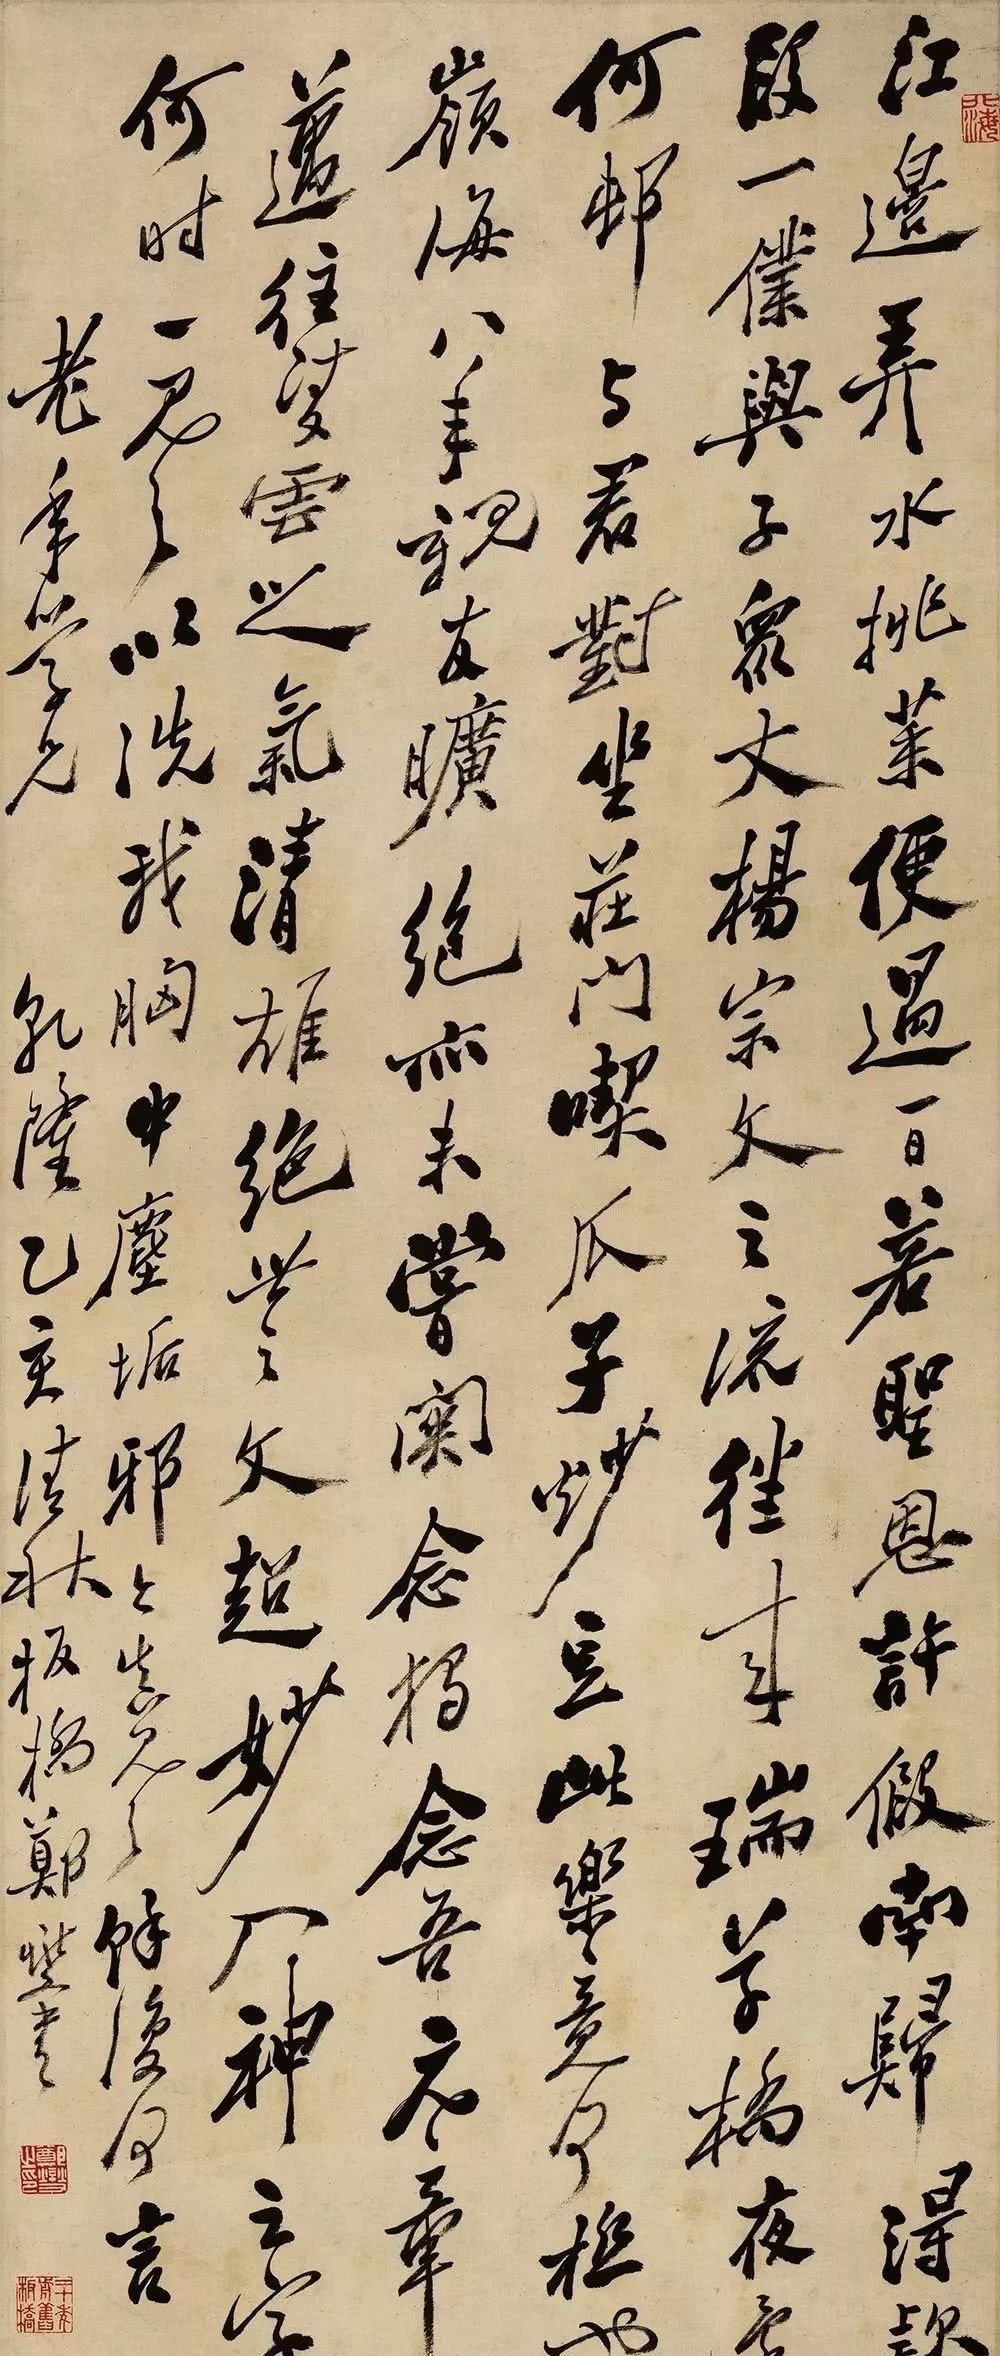 江邊弄水挑菜便過一日若聖恩許假南歸得款
段一僕與子衆丈楊宗文之流往來瑞草橋夜
何邨與君對坐莊門喫瓜子炒豆此樂竟何極也
嶺海八年親友曠絕亦未嘗關念獨念吾元章
邁往凌雲之氣清雄絕世之文超妙入神之字
何时一見之以洗我胸中塵垢邪今真見之餘復何言
老年學兄 乾隆乙亥清秋板橋鄭燮書